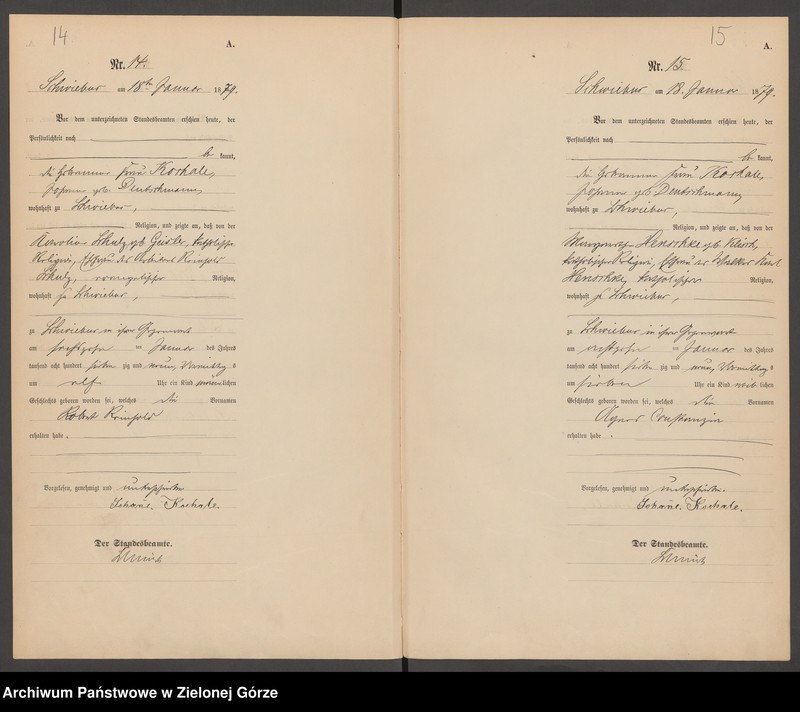 14
A.
Nr. 14.
Schwiebus am 18ten Januar 1879.
Vor dem unterzeichneten Standesbeamten erschien heute, der
Persönlichkeit nach
be kannt,
die Hebamme Frau Koschale,
geb. Deutschmann,
wohnhaft zu Schwiebus,
Religion, und zeigte an, daß von der
Schulz, geb. Geisler, katholischer
Religion, Ehefrau des Arbeiters Reinhold
Schulz, evangelischer Religion,
wohnhaft zu Schwiebus,
zu Schwiebus in ihrer Gegenwart
am Januar des Jahres
tausend acht hundert sieben zig und neun, Vormittags
um elf Uhr ein Kind männlichen
Geschlechts geboren worden sei, welches die Vornamen
Robert Reinhold
erhalten habe.
Vorgelesen, genehmigt und unterschrieben
Koschale.
Der Standesbeamte.
15
A.
Nr. 15.
Schwiebus am 18. Januar 1879.
Vor dem unterzeichneten Standesbeamten erschien heute, der
Persönlichkeit nach
be kannt,
die Hebamme Frau Koschale,
geb. Deutschmann,
wohnhaft zu Schwiebus,
Religion, und zeigte an, daß von der
Henschke geb.
katholischer Religion, Ehefrau des
Henschke, katholischer Religion,
wohnhaft zu Schwiebus,
zu Schwiebus in ihrer Gegenwart
am Januar des Jahres
tausend acht hundert sieben zig und neun, Vormittags
um sieben Uhr ein Kind weib lichen
Geschlechts geboren worden sei, welches die Vornamen
Agnes
erhalten habe.
Vorgelesen, genehmigt und unterschrieben.
Koschale.
Der Standesbeamte.
Archiwum Państwowe w Zielonej Górze